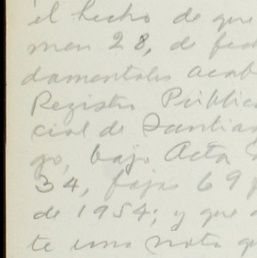 el hecho de que
men 28, de fec
damentales acab
Registro Públic
cial de Santia
go, bajo Acta
34, fojas 69
de 1954; y que
te una nota q